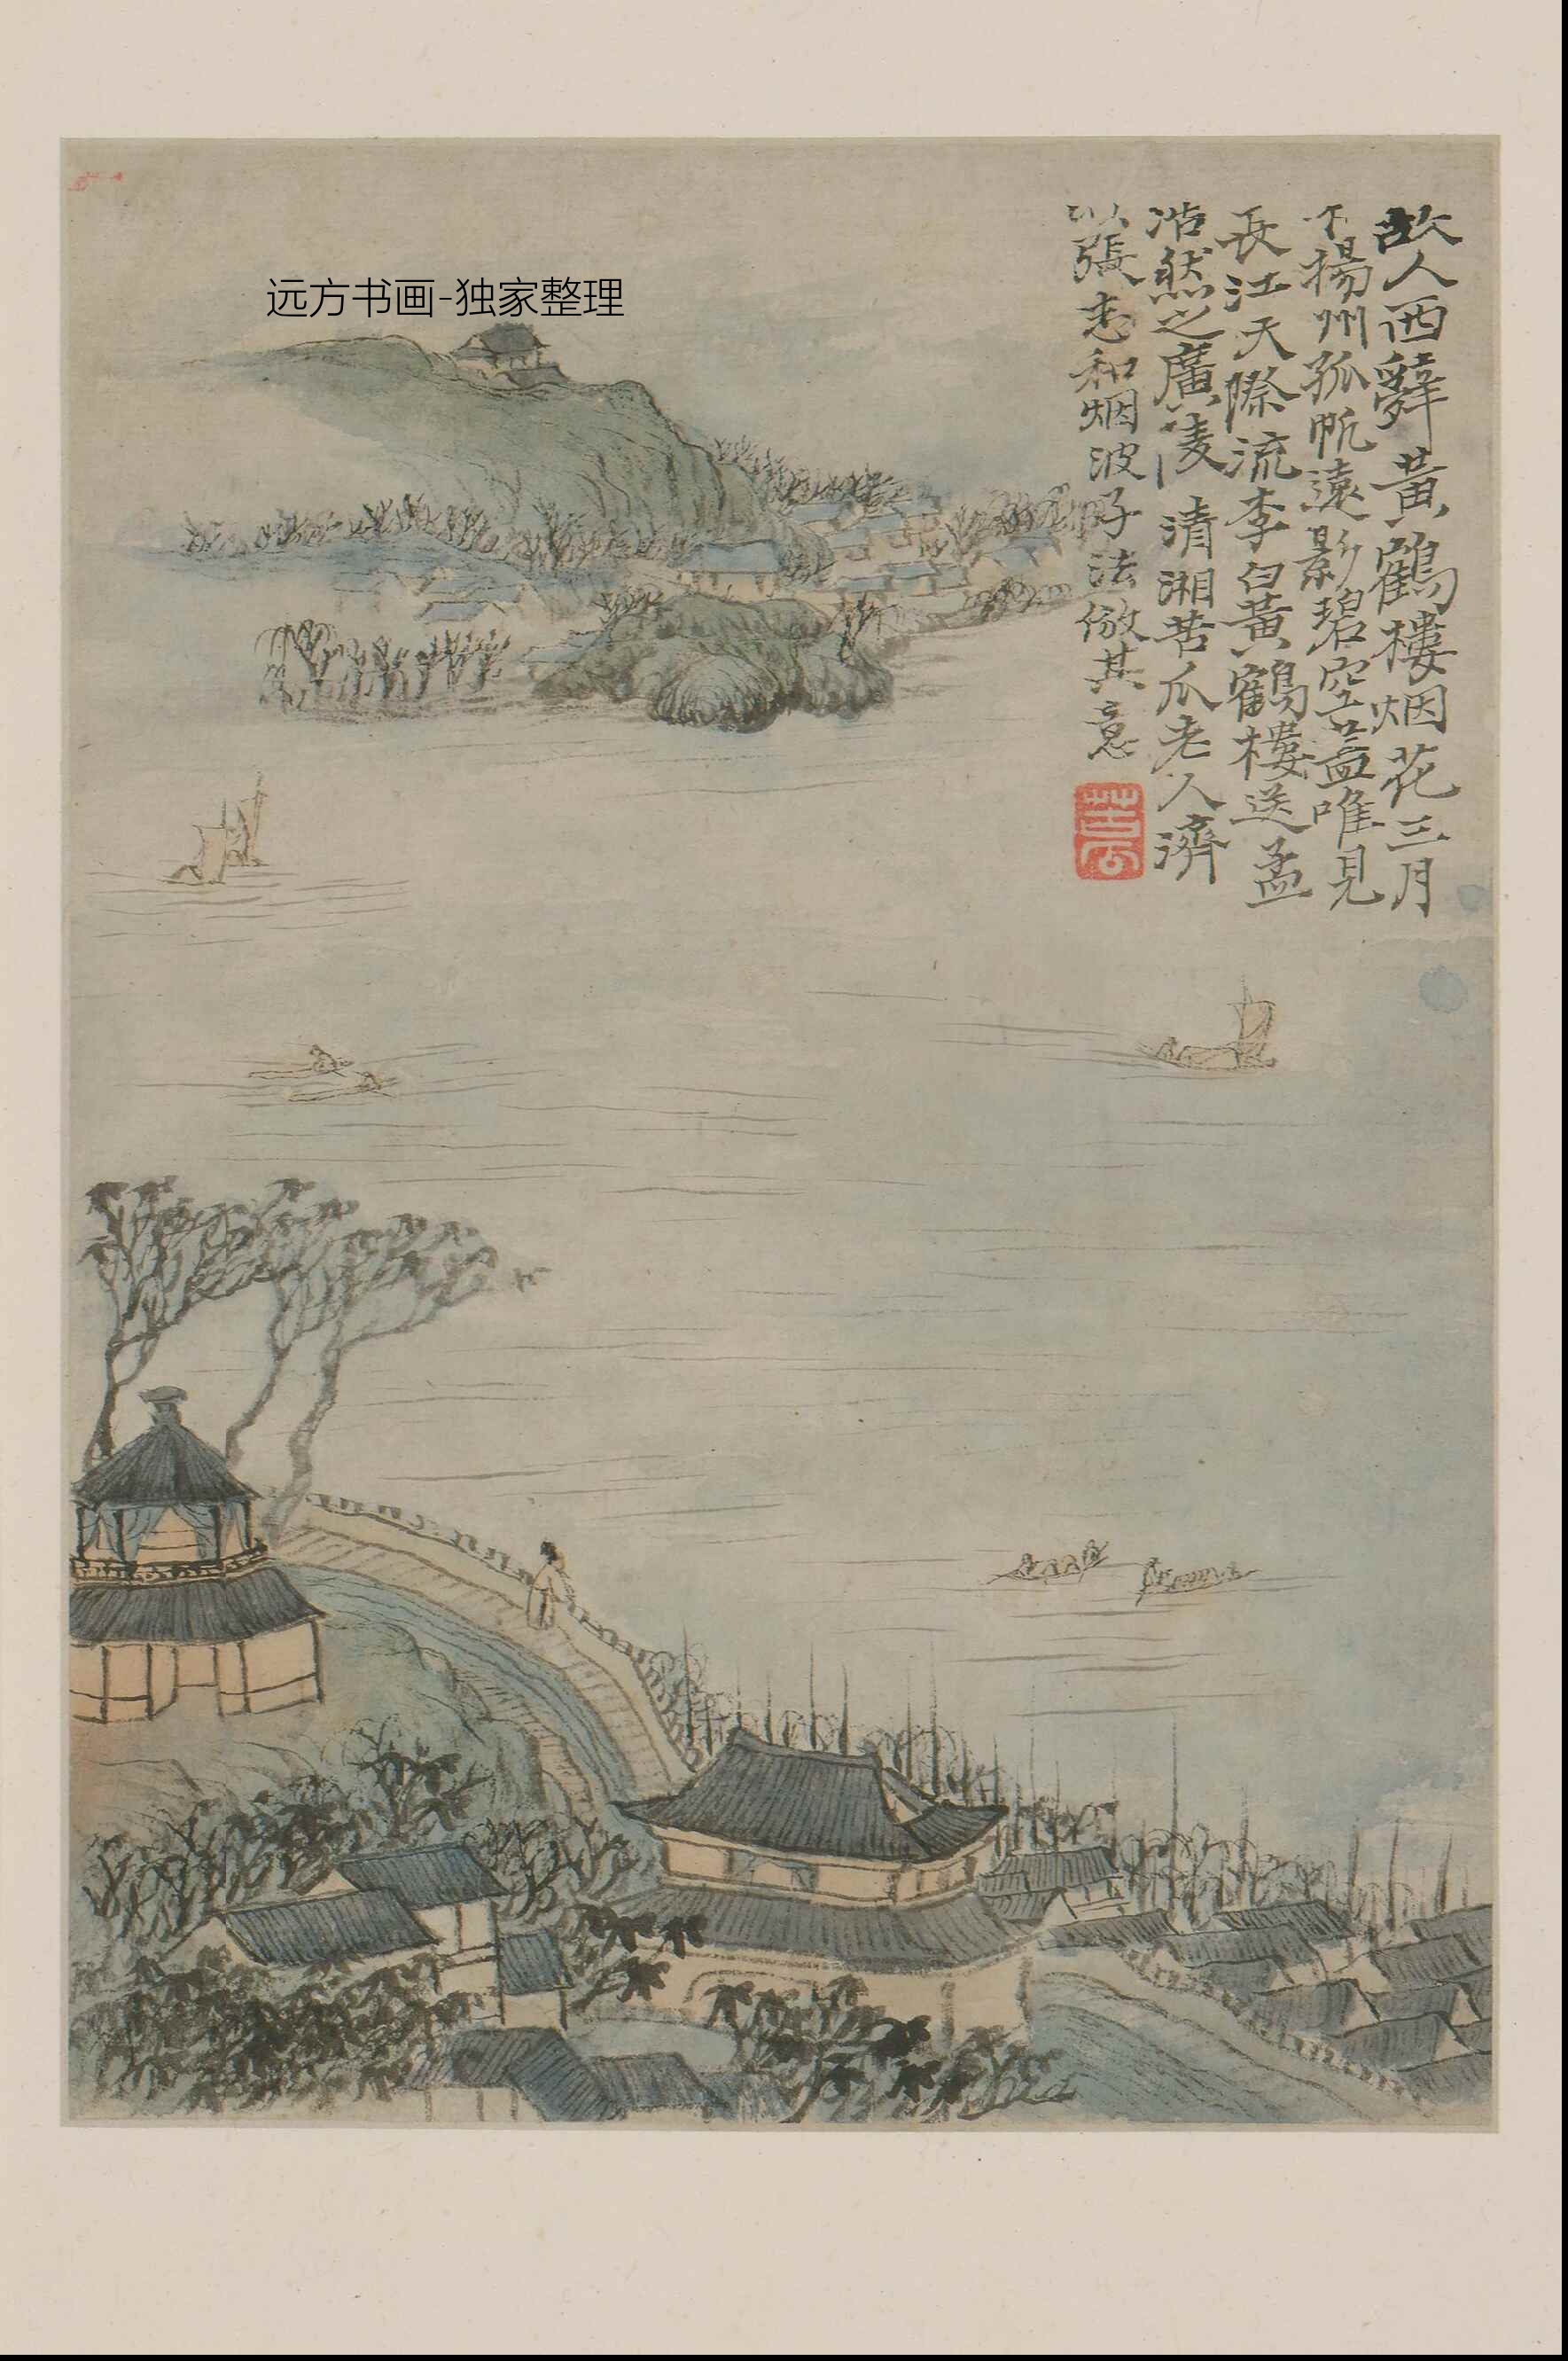 故人西辭黃鶴樓烟花三月
下揚州孤帆遠影碧空盡唯見
長江天際流李白黃鶴樓送孟
浩然之廣陵 清湘苦瓜老人濟
以張志和烟波子法倣其意
苦瓜
远方书画-独家整理